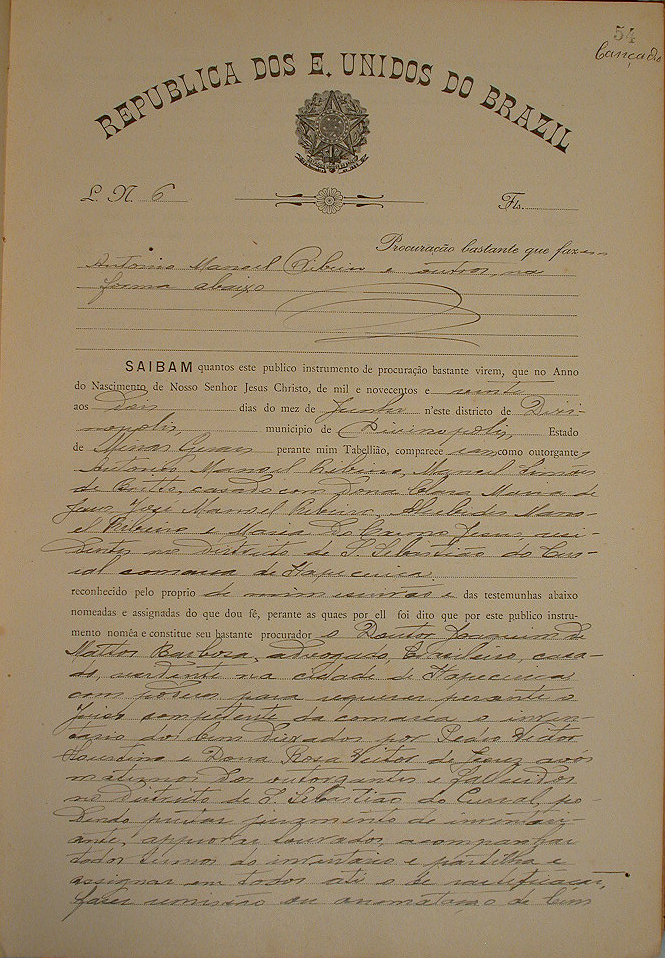 54
Cançado
REPUBLICA DOS E. UNIDOS DO BRAZIL
L. N. 6 Fls.
Procuração bastante que fazem
Antonio Manoel Ribeiro e outros, na
forma abaixo
SAIBAM quantos este publico instrumento de procuração bastante virem, que no Anno
do Nascimento de Nosso Senhor Jesus Christo, de mil e novecentos e vinte
aos dois dias do mez de Junho n'este districto de Divi-
nopolis, municipio de Divinopolis, Estado
de Minas Geraes perante mim Tabellião, comparece ram como outorgantes
Antonio Manoel Ribeiro, Manoel Simões
de Britto, casado com Dona Clara Maria de
Jesus, José Manoel Ribeiro, Mano-
el Ribeiro e Maria do Carmo Jesus, resi-
dentes no districto de S. Sebastião do Cur-
ral comarca de Itapecerica
reconhecido pelo proprio de mim e das testemunhas abaixo
nomeadas e assignadas do que dou fé, perante as quaes por ell foi dito que por este publico instru-
mento nomêa e constitue seu bastante procurador o Doutor Joaquim de
Mattos Barbosa, advogado, brasileiro, casa-
do, residente na cidade de Itapecerica
com poderes para requerer perante o
Juiso competente da comarca o inven-
tario dos bens deixados por Pedro Victor
e Dona Rosa Victor de avós
maternos dos outorgantes e fallecidos
no districto de S. Sebastião do Curral, po-
dendo prestar juramento de inventari-
ante, approvar louvados, acompanhar
todos termos do inventario e partilha e
assignar em todos até o de ratificação,
fazer remissão ou arrematação de bens